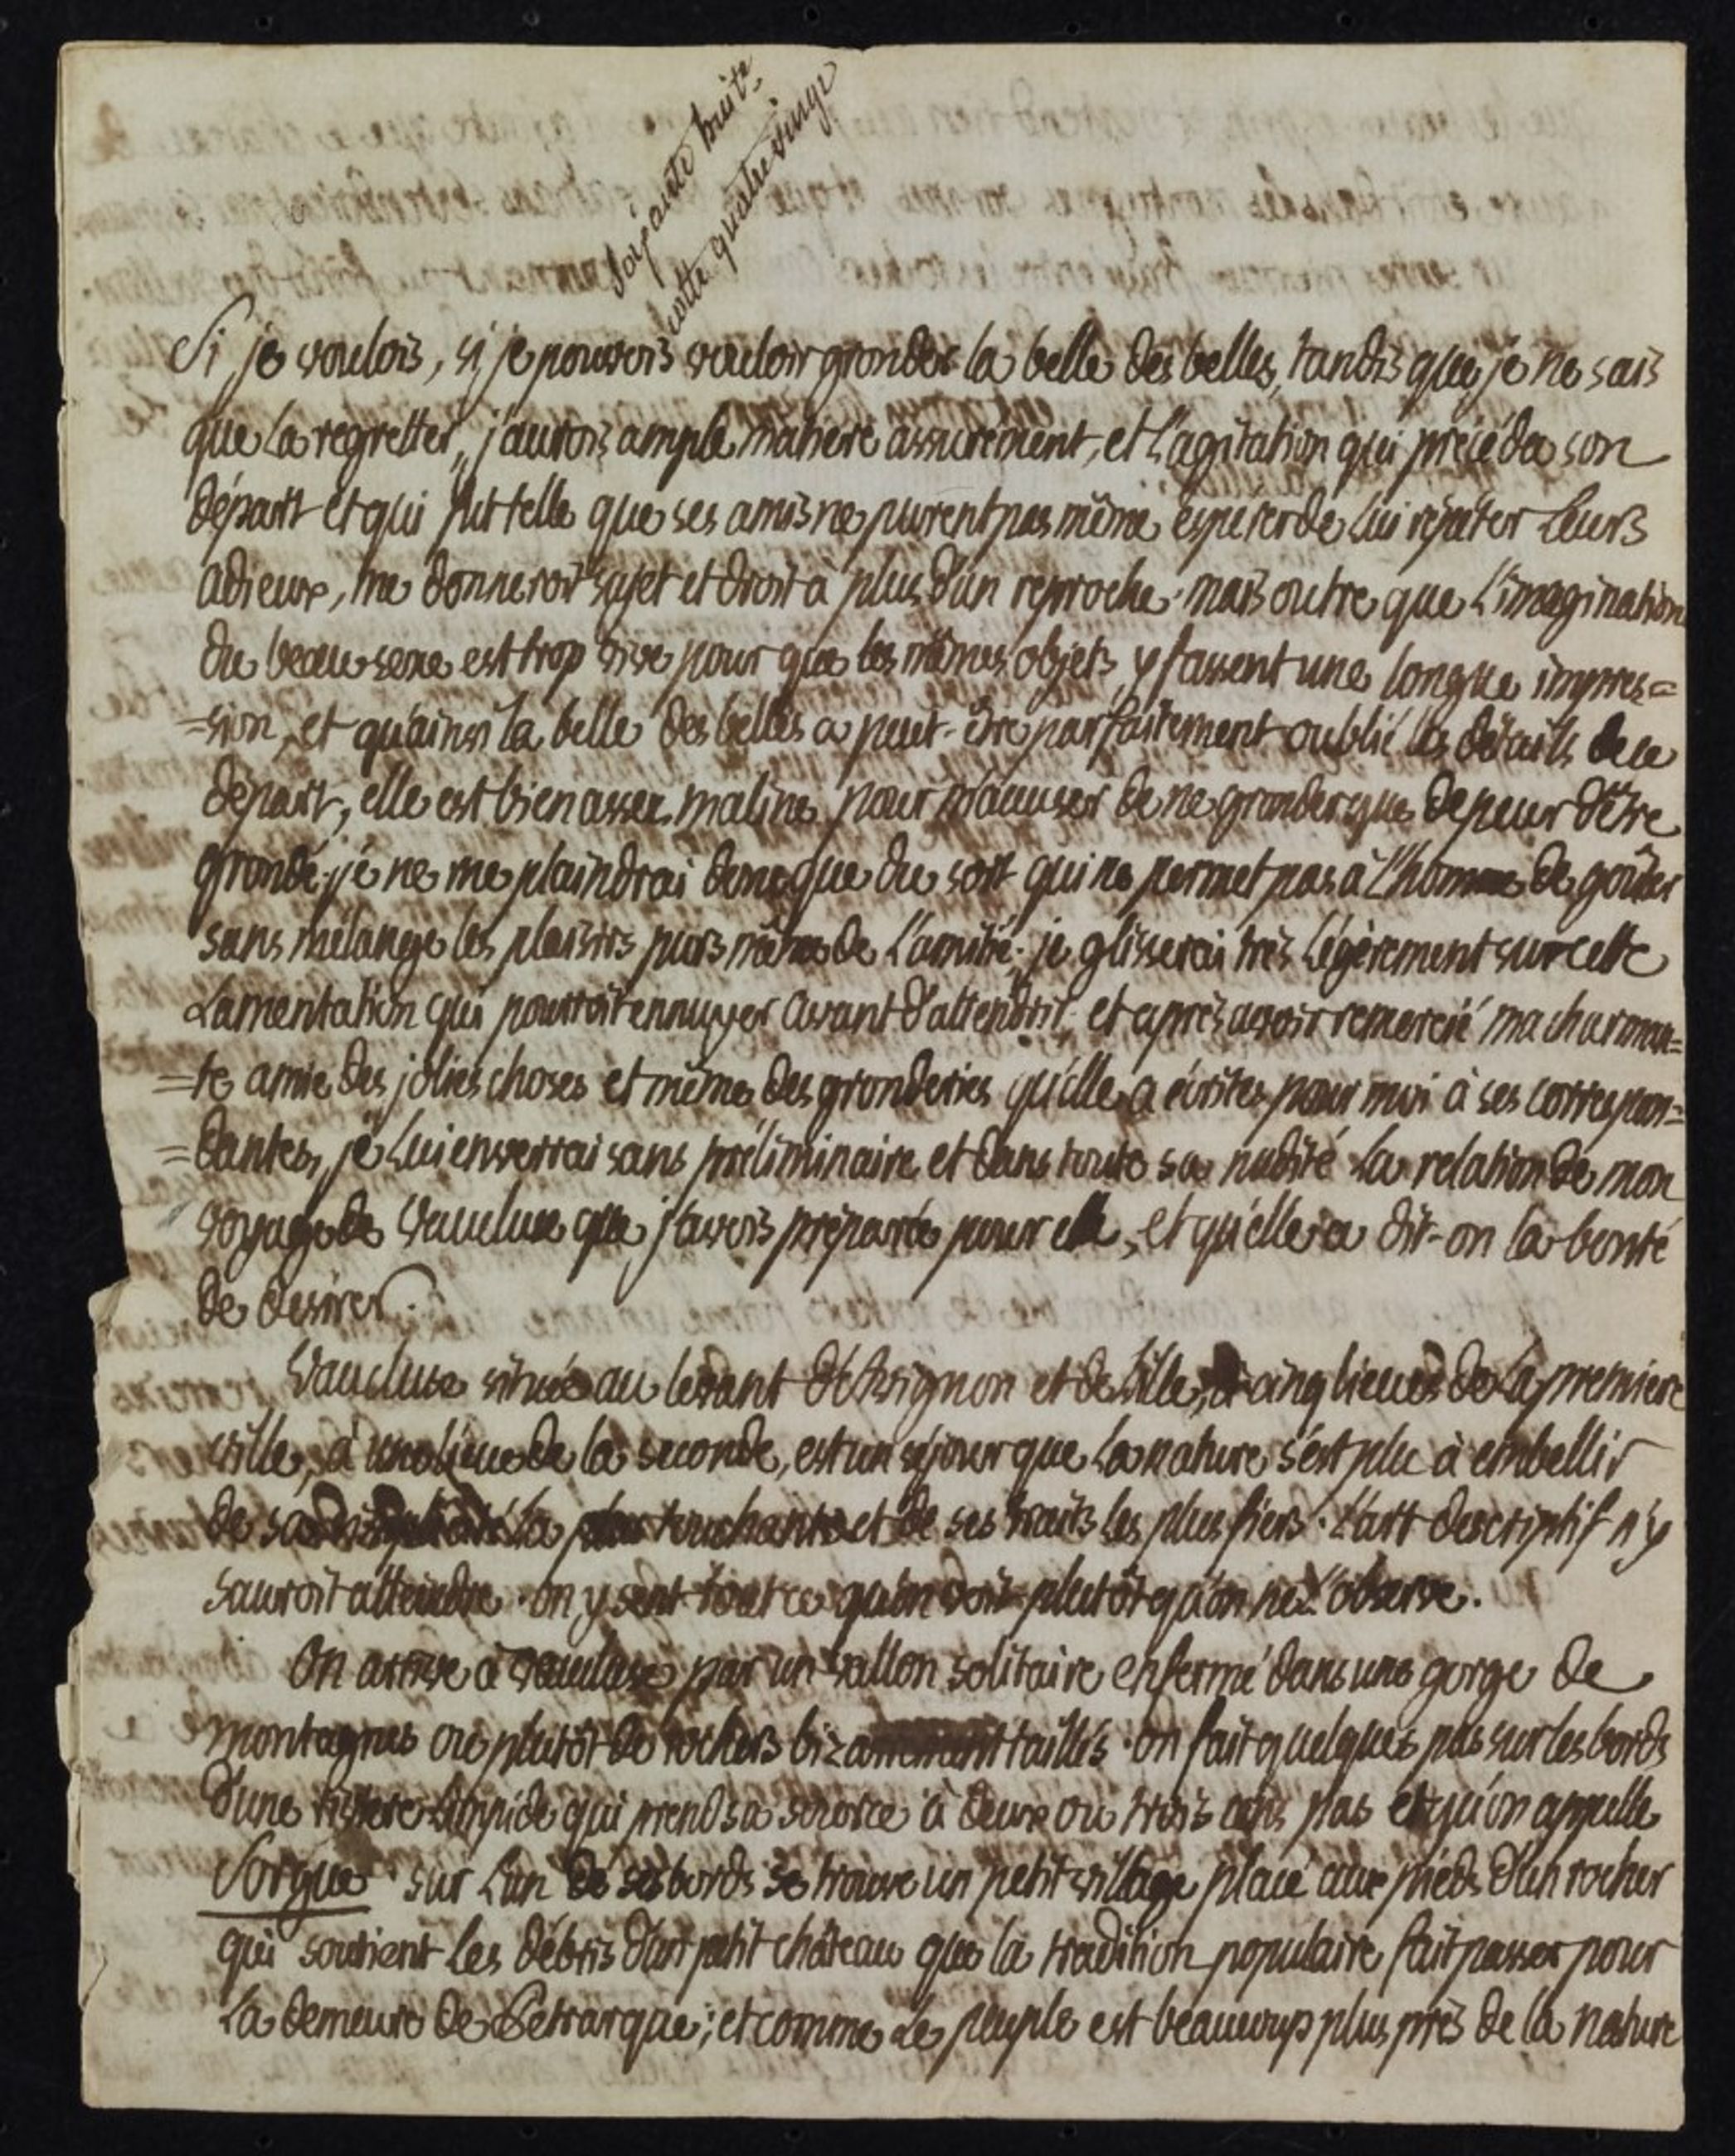 soixante huit
cotte quatre vingt
Si je voulois, si je pouvois vouloir gronder la belle des belles, tandis que je ne sais
que la regretter, j'aurois ample matiere assurément, et l'agitation qui précéda son
départ et qui fut telle que ses amis ne purent pas même espérer de lui répéter leurs
adieux, me donneroit sujet et droit à plus d'un reproche. mais outre que l'imagination
du beau sexe est trop vive pour que les mêmes objets y fassent une longue impres=
=sion, et qu'ainsi la belle des belles a peut-être parfaitement oublié les détails de ce
départ, elle est bien assez maline pour m'accuser de ne gronder que de peur d'être
grondé. je ne me plaindrai donc que du sort qui ne permet pas à l'homme de goûter
sans mélange les plaisirs purs même de l'amitié; je glisserai très légèrement sur cette
lamentation qui pourroit ennuyer avant d'attendrir, et après avoir remercié ma charman=
=te amie des jolies choses et même des gronderies qu'elle a écrites pour moi à ses correspon=
=dantes, je lui enverrai sans préliminaire et dans toute sa nudité la relation de mon
voyage de Vaucluse que j'avois préparée pour elle, et qu'elle a dit-on la bonté
de desirer.
Vaucluse située au levant d'Avignon et de Lille, à cinq lieues de la premiere
ville, à une lieue de la seconde, est un séjour que la nature s'est plu à embellir
de sa simplicité la plus touchante et de ses traits les plus fiers. l'art descriptif n'y
sauroit atteindre. on y sent tout ce qu'on voit plutôt qu'on ne l'observe.
On arrive à vaucluse par un vallon solitaire enfermé dans une gorge de
montagnes ou plutôt de rochers bizarrement taillés. on fait quelques pas sur les bords
d'une riviere limpide qui prend sa source à deux ou trois cens pas et qu'on appelle
Sorgue. sur l'un de ses bords se trouve un petit village placé aux pieds d'un rocher
qui soutient les débris d'un petit château que la tradition populaire fait passer pour
la demeure de Petrarque; et comme le peuple est beaucoup plus près de la nature